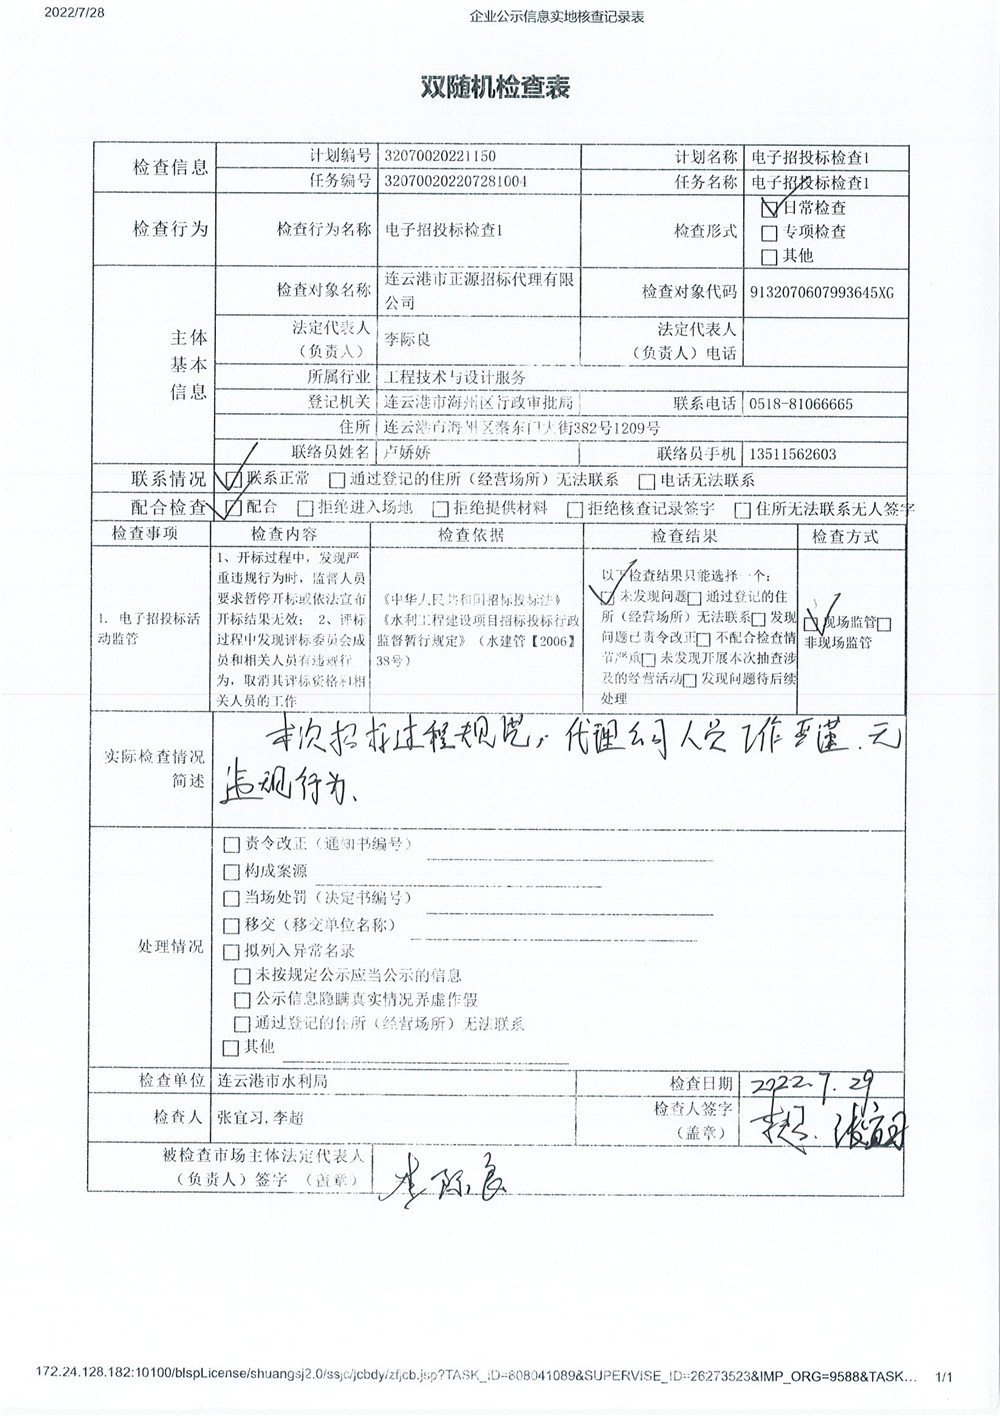 2022/7/28 企业公示信息实地核查记录表
双随机检查表
检查信息 计划编号 32070020221150 计划名称 电子招投标检查1
任务编号 320700202207281004 任务名称 电子招投标检查1
检查行为 检查行为名称 电子招投标检查1 检查形式 日常检查
专项检查
其他
主体
基本
信息
检查对象名称 连云港市正源招标代理有限
公司
检查对象代码 9132070607993645XG
法定代表人
（负责人）
李际良
法定代表人
（负责人）电话
所属行业 工程技术与设计服务
登记机关 连云港市海州区行政审批局 联系电话 0518-81066665
住所 连云港市海州区秦东门大街382号1209号
联络员姓名 卢娇娇 联络员手机 13511562603
联系情况 联系正常 通过登记的住所（经营场所）无法联系 电话无法联系
配合检查 配合 拒绝进入场地 拒绝提供材料 拒绝核查记录签字 住所无法联系无人签字
检查事项 检查内容 检查依据 检查结果 检查方式
1. 电子招投标活
动监管
1、开标过程中，发现严
重违规行为时，监督人员
要求暂停开标或依法宣布
开标结果无效； 2、评标
过程中发现评标委员会成
员和相关人员有违规行
为，取消其评标资格和相
关人员的工作
《中华人民共和国招标投标法》
《水利工程建设项目招标投标行政
监督暂行规定》（水建管【2006】
38号）
以下检查结果只能选择一个：
未发现问题 通过登记的住
所（经营场所）无法联系 发现
问题已责令改正 不配合检查情
节严重 未发现开展本次抽查涉
及的经营活动 发现问题待后续
处理
现场监管
非现场监管
实际检查情况
简述
本次招标过程规范，代理公司人员工作严谨，无
违规行为。
处理情况
责令改正（通知书编号）
构成案源
当场处罚（决定书编号）
移交（移交单位名称）
拟列入异常名录
未按规定公示应当公示的信息
公示信息隐瞒真实情况弄虚作假
通过登记的住所（经营场所）无法联系
其他
检查单位 连云港市水利局 检查日期 2022.7.29
检查人 张宜习,李超 检查人签字
（盖章）
李超、张宜习
被检查市场主体法定代表人
（负责人）签字 （盖章）
李际良
172.24.128.182:10100/blspLicense/shuangsj2.0/ssjc/jcbdy/zfjcb.jsp?TASK_ID=808041089&SUPERVISE_ID=26273523&IMP_ORG=9588&TASK... 1/1